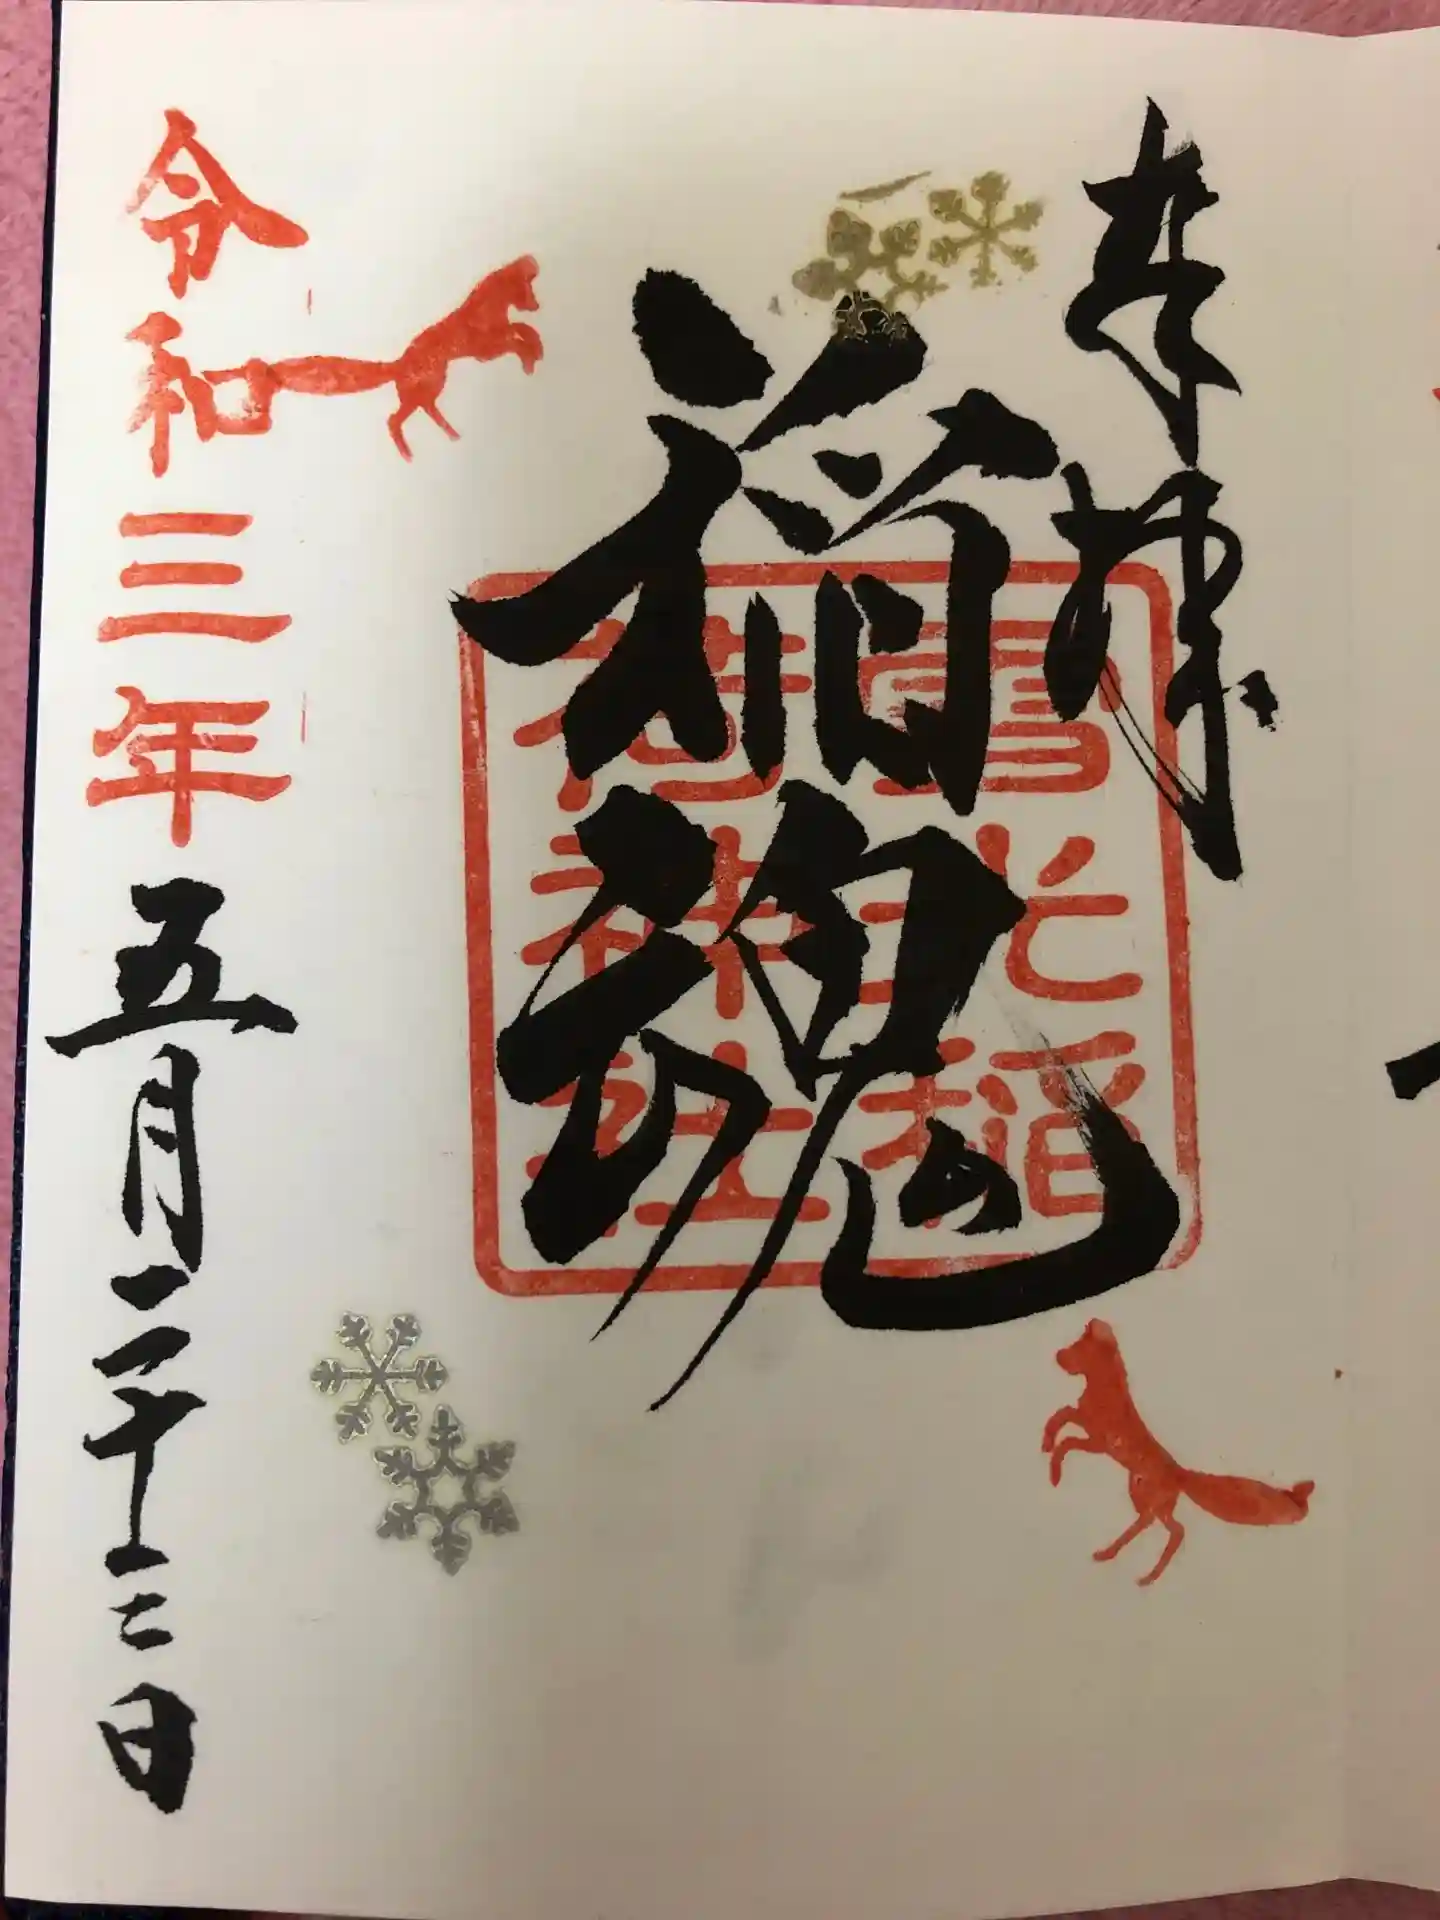 奉拝
稲魂
稲
荷神社
令和三年五月二十三日